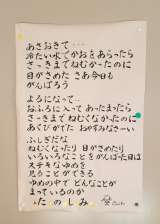 あさおきて・・・・
冷たい水でかおをあらったら
さっきまでねむかったのに
目がさめた さあ今日も
がんばろう
よるになって・・・
おふろに入って あったまったら
さっきまでねむくなかったのに
あくびがでた おやすみなさーい
ふしぎだな
ねむくなったり 目がさめたり
いろいろなことをがんばった日は
ステキなゆめを
見ることができる
ゆめの中で どんなことが
まっているのか
たのしみ